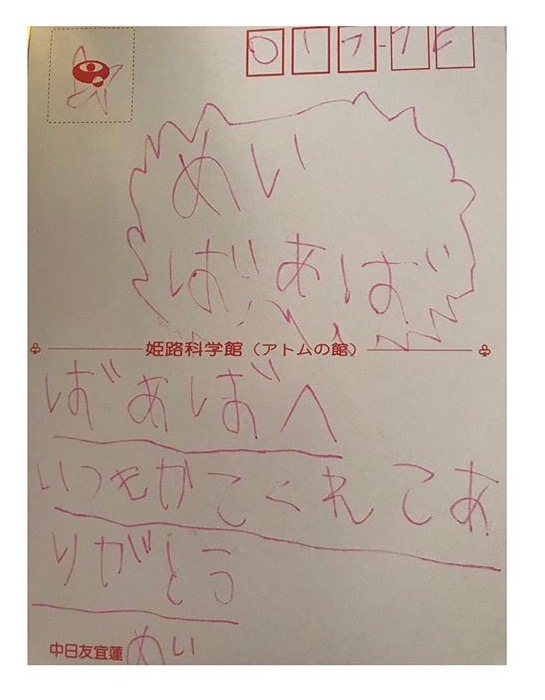 めい
ばあば
姫路科学館（アトムの館）
ばあばへ
いつもかてくれてあ
りがとう
中日友宜蓮 めい